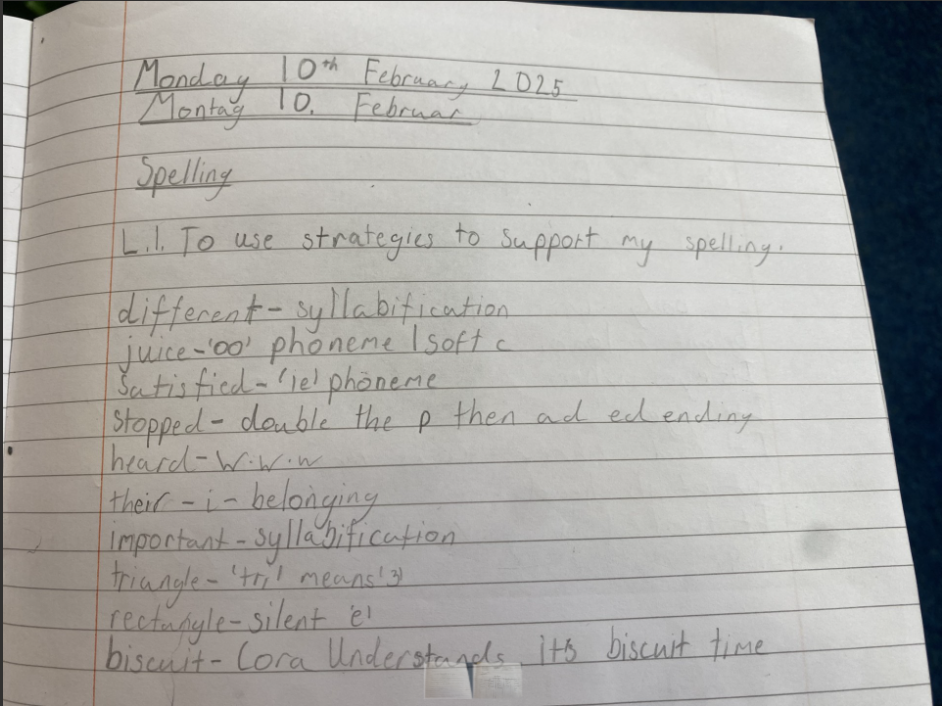 Monday 10th February 2025
Montag 10. Februar
Spelling
L.I. To use strategies to support my spelling.
different - syllabification
juice - 'oo' phoneme / soft c
satisfied - 'ie' phoneme
stopped - double the p then ad ed ending
heard - w.w.w
their - i - belonging
important - syllabification
triangle - 'tri' means '3'
rectangle - silent 'e'
biscuit - Cora Understands its biscuit time